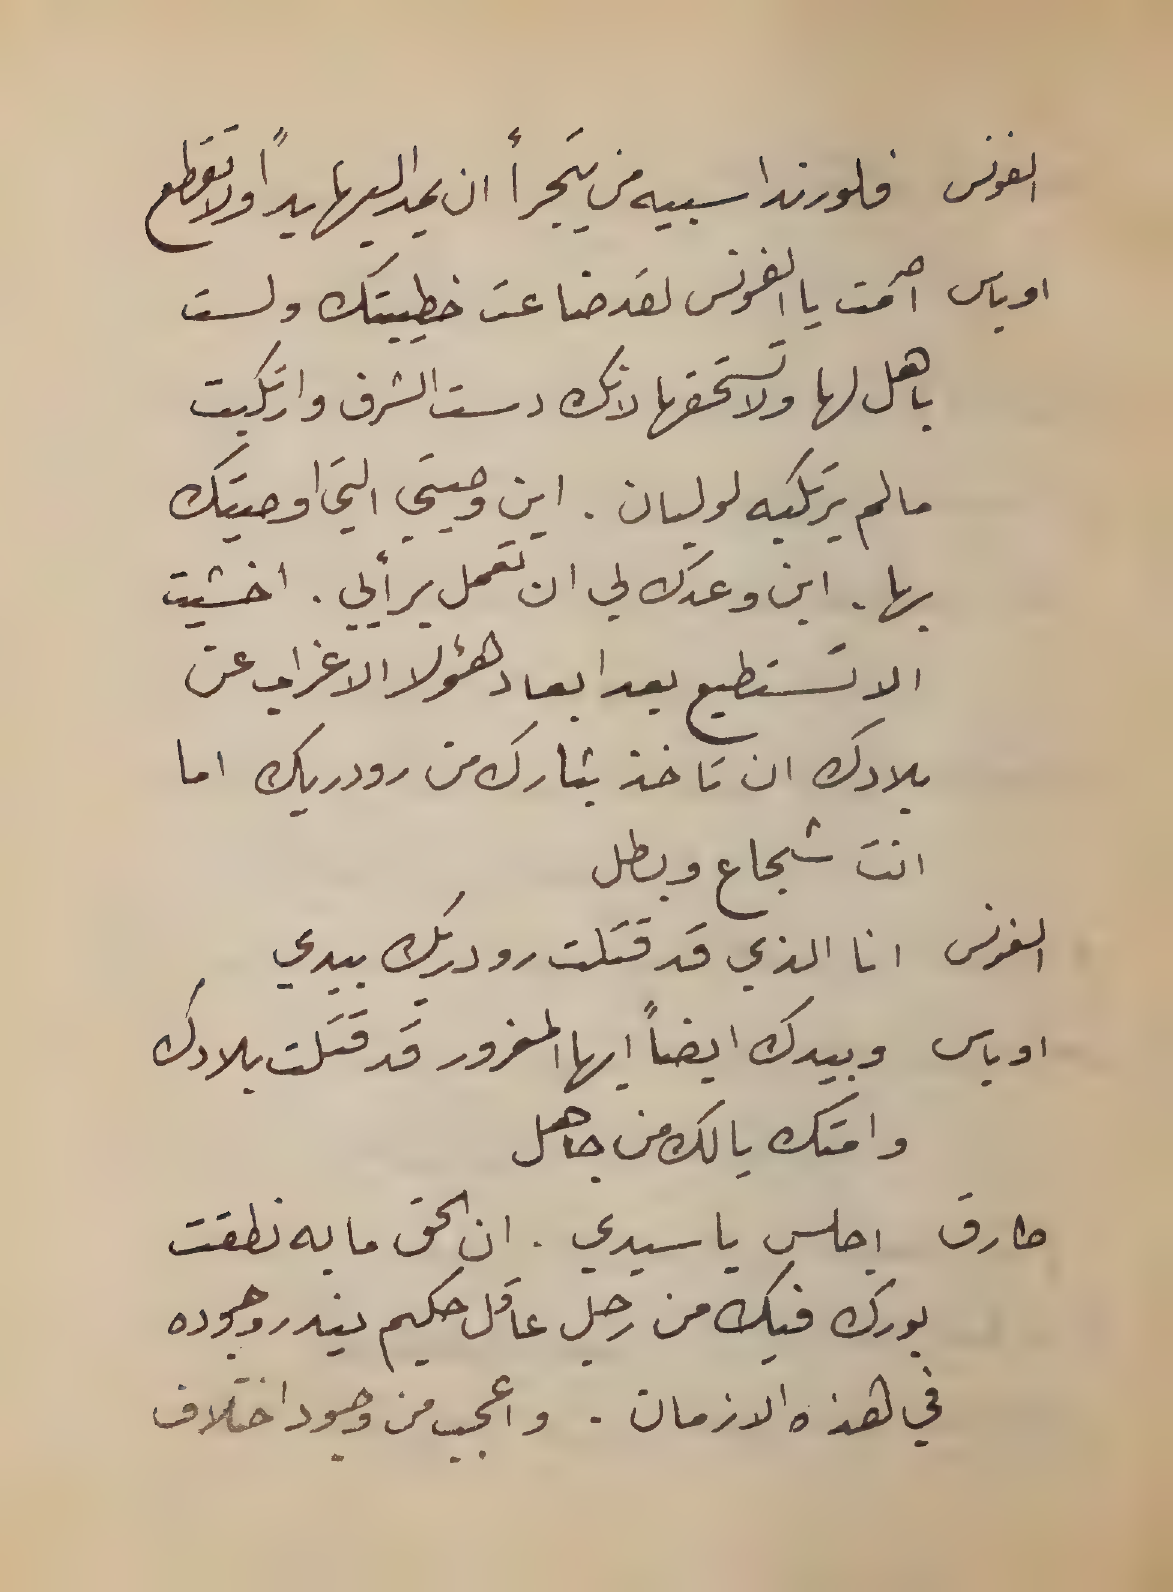 الفونس فلورندا سبيه من يتجرأ ان يمد اليها يداً ولا تقطع
اوباس اصمت يا الفونس لقد ضاعت خطيبتك ولست
باهل لها ولا تستحقها لانك دست الشرف وارتكبت
ما لم يرتكبه لوليان . اين وصيتي التي اوصيتك
بها . اين وعدك لي ان تعمل برأيي . اخشيت
الا تستطيع بعد ابعاد هؤلا الاغراب عن
بلادك ان تاخذ بثارك من رودريك اما
انت شجاع وبطل
الفونس انا الذي قد قتلت رودريك بيدي
اوباس وبيدك ايضاً ايها المغرور قد قتلت بلادك
وامتك يا لك من جاهل
طارق اجلس يا سيدي . ان الحق ما به نطقت
بورك فيك من رجل عاقل حكيم يندر وجوده
في هذه الازمان . واعجب من وجود اختلاف